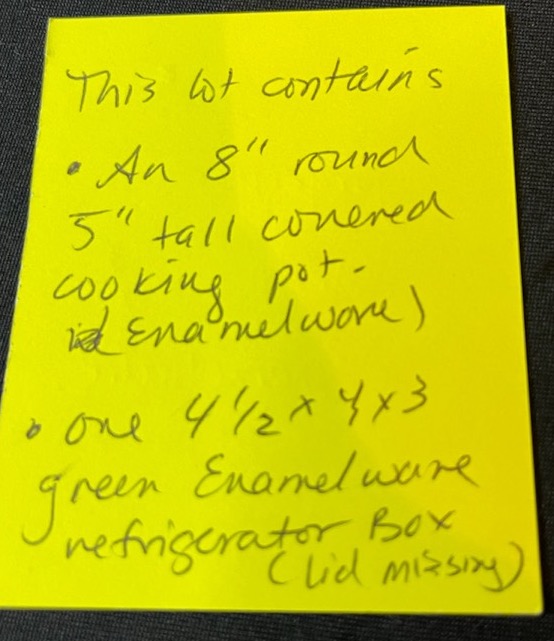 This lot contains
• An 8" round
5" tall covered
cooking pot.
(Enamelware)
• one 4 1/2 x 4 x 3
green Enamelware
refrigerator Box
(lid missing)